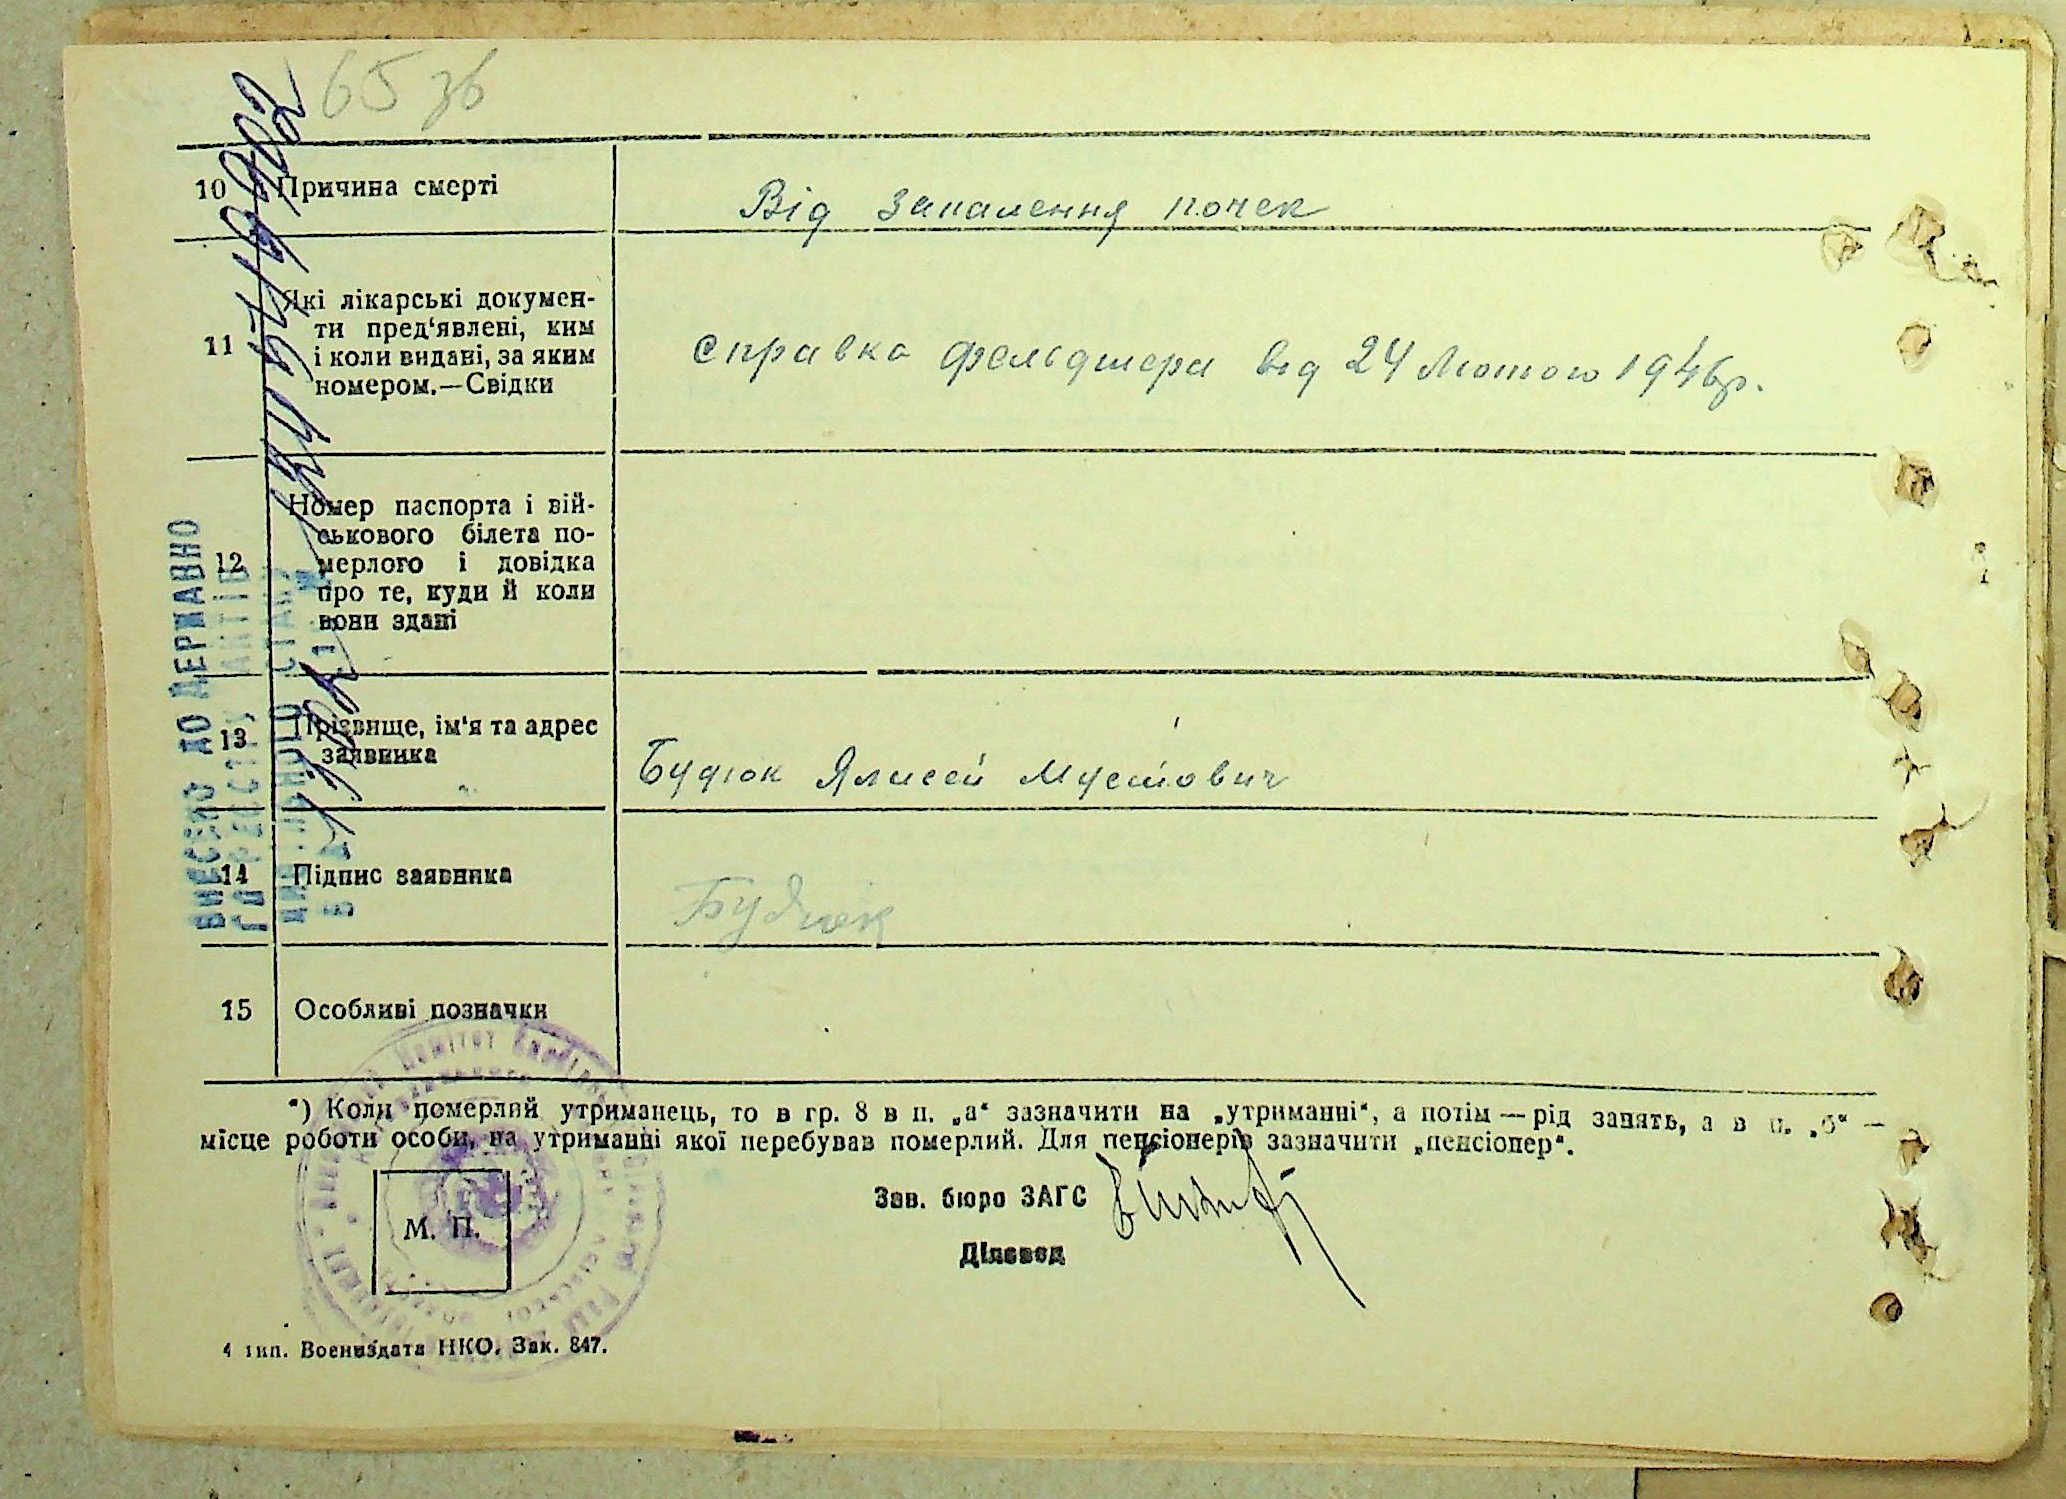 65 зв
10 Причина смерті
Від запалення почек
11 Які лікарські докумен-
ти пред'явлені, ким
і коли видані, за яким
номером.—Свідки
справка фельдшера від 24 Лютого 1946р.
12 Номер паспорта і вій-
ськового білета по-
мерлого і довідка
про те, куди й коли
вони здані
13 Прізвище, ім'я та адрес
заявника
Будюк Ялисей Мустович
14 Підпис заявника
Будюк
15 Особливі позначки
ВНЕСЕНО ДО ДЕРЖАВНО
*) Коли померлий утриманець, то в гр. 8 в п. „а“ зазначити на „утриманні“, а потім — рід занять, а в п. „б“ —
місце роботи особи, на утриманні якої перебував померлий. Для пенсіонерів зазначити „пенсіонер“.
Зав. бюро ЗАГС
М. П.
Діловод
4 тип. Воениздата НКО. Зак. 847.